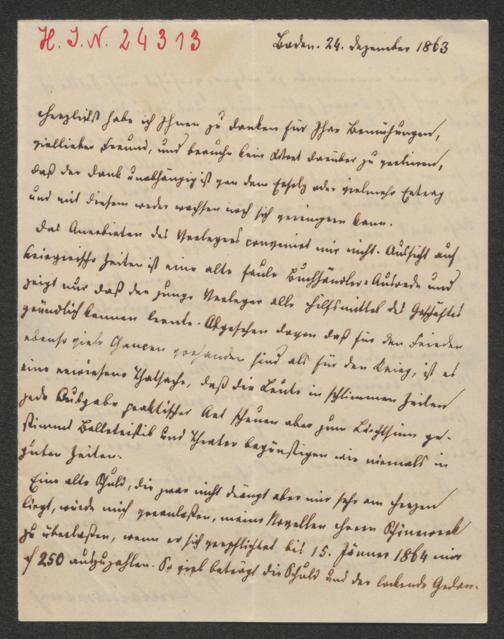 H. I. N. 24313
Baden. 24. Dezember 1863
Herzlichst habe ich Ihnen zu danken für Ihre Bemühungen,
viellieber Freund, und brauche kein Wort darüber zu verlieren,
daß der Dank unabhängig ist von dem Erfolg oder vielmehr Ertrag
und mit diesem weder wachsen noch sich verringern kann.
Das Anerbieten des Verlegers convenirt mir nicht. Aussicht auf
kriegerische Zeiten ist eine alte faule Buchhändler-Ausrede und
zeigt nur daß der junge Verleger alle Hilfsmittel des Geschäftes
gründlich kennen lernte. Abgesehen davon daß für den Frieden
ebenso viele Chancen vorhanden sind als für den Krieg, ist es
eine erwiesene Thatsache, daß die Leute in schlimmen Zeiten
jede Ausgabe praktischer Art scheuen aber zum Leichtsinn ge-
stimmt Belletristik und Theater begünstigen wie niemals in
guten Zeiten.
Eine alte Schuld, die zwar nicht drängt aber mir sehr am Herzen
liegt, würde mich veranlassen, meine Novellen Herrn
zu überlassen, wenn er sich verpflichtet bis 15. Jänner 1864 mir
f 250 auszuzahlen. So viel beträgt die Schuld und der lockende Gedan-